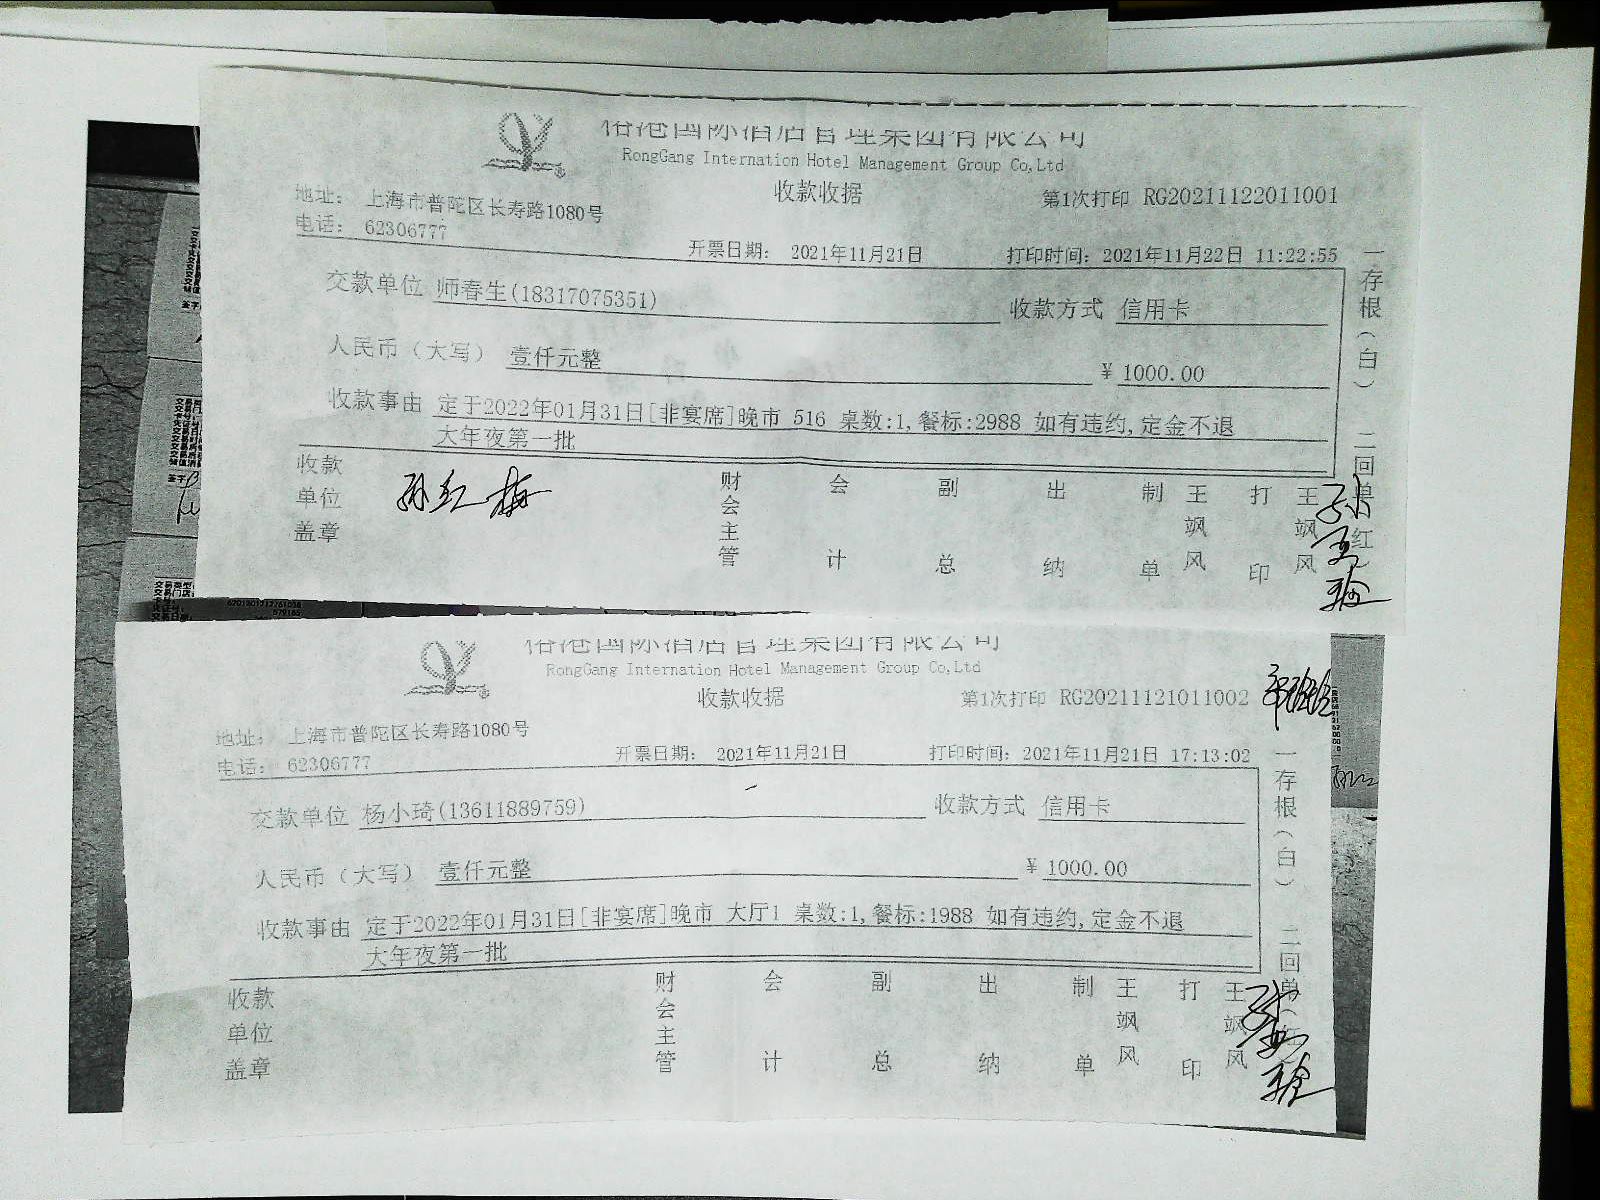 榕港国际酒店管理集团有限公司
RongGang Internation Hotel Management Group Co,Ltd
收款收据
第1次打印 RG20211122011001
地址: 上海市普陀区长寿路1080号
电话: 62306777
开票日期: 2021年11月21日
打印时间: 2021年11月22日 11:22:55
交款单位 师春生(18317075351)
收款方式 信用卡
人民币(大写) 壹仟元整
¥ 1000.00
收款事由 定于2022年01月31日[非宴席]晚市 516 桌数:1,餐标:2988 如有违约,定金不退
大年夜第一批
收款单位盖章
孙红梅
财会主管
会计
副总
出纳
制单
王飒风
打印
王飒风
一存根(白)
二回单(红)
榕港国际酒店管理集团有限公司
RongGang Internation Hotel Management Group Co,Ltd
收款收据
第1次打印 RG20211121011002
地址: 上海市普陀区长寿路1080号
电话: 62306777
开票日期: 2021年11月21日
打印时间: 2021年11月21日 17:13:02
交款单位 杨小琦(13611889759)
收款方式 信用卡
人民币(大写) 壹仟元整
¥ 1000.00
收款事由 定于2022年01月31日[非宴席]晚市 大厅1 桌数:1,餐标:1988 如有违约,定金不退
大年夜第一批
收款单位盖章
财会主管
会计
副总
出纳
制单
王飒风
打印
王飒风
一存根(白)
二回单